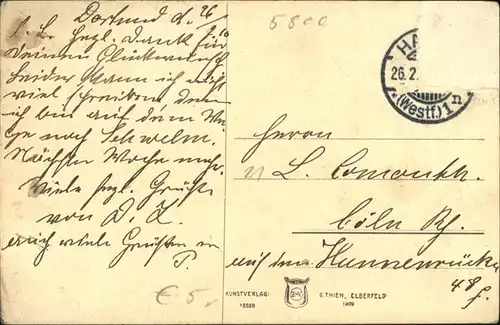 Dortmund d. 26
L. L. Herzl. Dank für
Deinen Glückwunsch
Leider kann ich nicht
viel schreiben denn
ich bin auf dem We
ge nach Schwelm.
Nächste Woche mehr.
Viele herzl. Grüße
von D. L.
auch viele Grüße
P.
58
HA
26.2.
(Westf.) 1n
Herrn
L.
Cöln Rh.
auf dem Hunnenrücken
48
€ 5,-
KUNSTVERLAG:
E. THIEN, ELBERFELD
1909